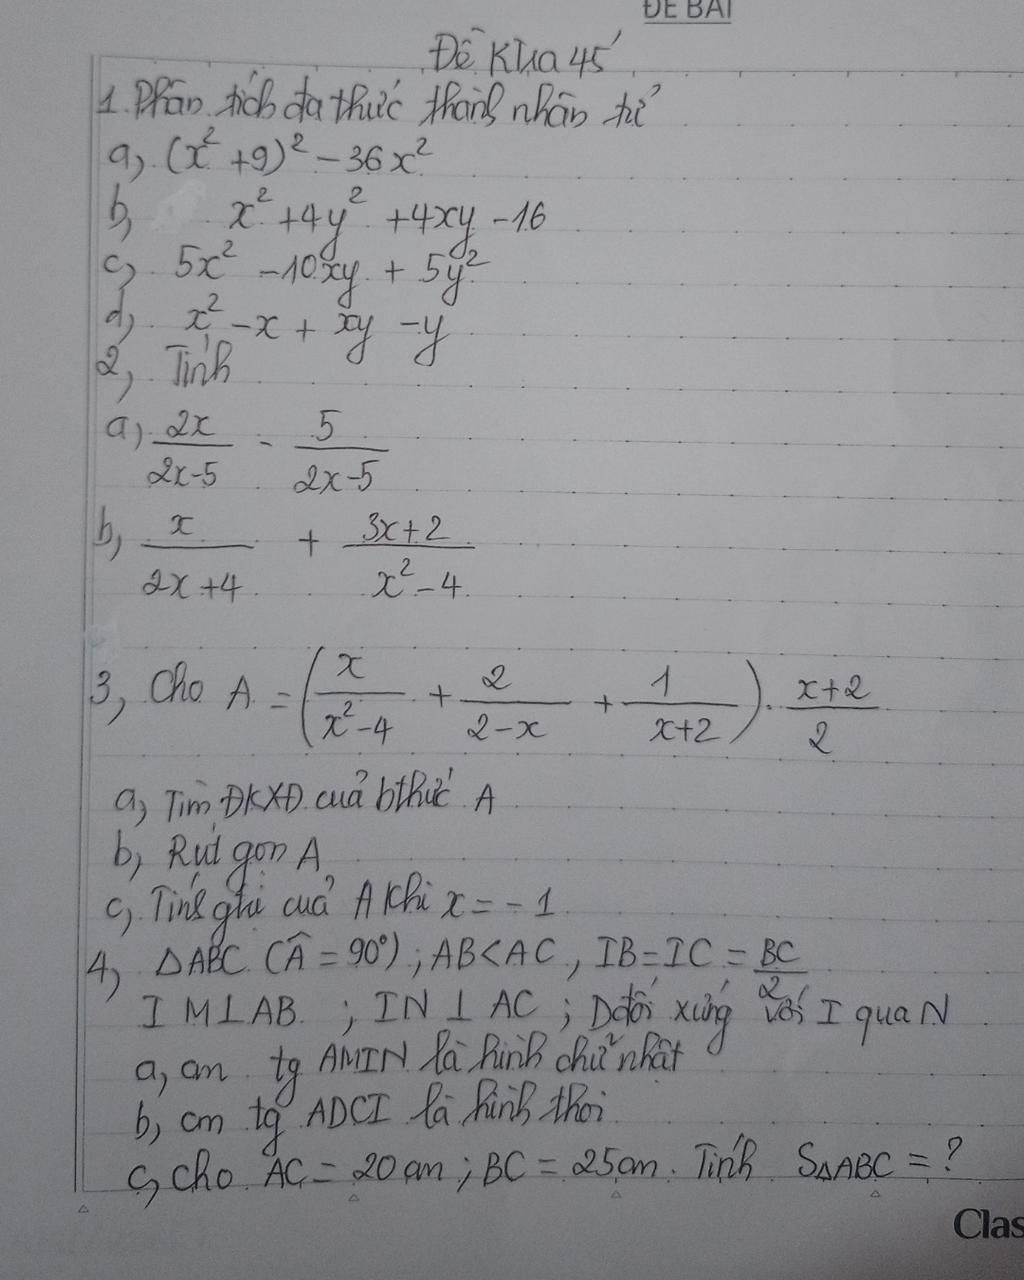 ĐỀ BÀI
Đề Ktra 45'
1. Phân tích đa thức thành nhân tử
a, (x² + 9)² - 36x²
b, x² + 4y² + 4xy - 16
c, 5x² - 10xy + 5y²
d, x² - x + xy - y
2, Tính
a, 2x/(2x-5) - 5/(2x-5)
b, x/(2x+4) + (3x+2)/(x²-4)
3, Cho A = (x/(x²-4) + 2/(2-x) + 1/(x+2)) . (x+2)/2
a, Tìm ĐKXĐ của bthức A
b, Rút gọn A
c, Tính gtrị của A khi x = -1
4, ΔABC (Â = 90°) ; AB < AC , IB = IC = BC/2
IM⊥AB ; IN ⊥ AC ; D đối xứng với I qua N
a, cm tg AMIN là hình chữ nhật
b, cm tg ADCI là hình thoi
c, cho AC = 20cm ; BC = 25cm. Tính SΔABC = ?
Clas